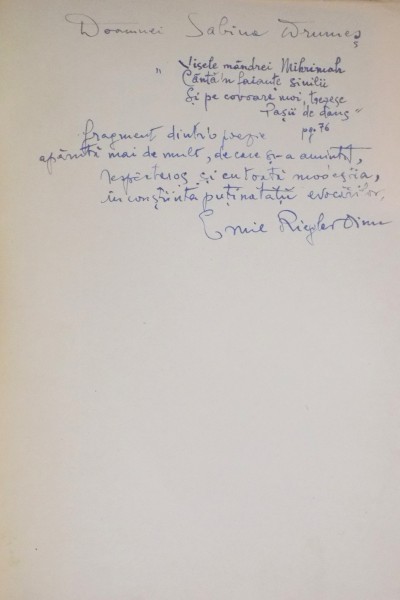 Doamnei Sabina Drumeș
„Visele mândrei Mihrimah
Cântă'n faianțe sinilii
Și pe covoare moi, trezesc
Pașii de dans"
pg. 76
fragment dintr'o poezie
apărută mai de mult, de care și-a amintit,
respectuos și cu toată modestia,
în conștiința puținatății evocărilor,
Emil Riegler Dinu